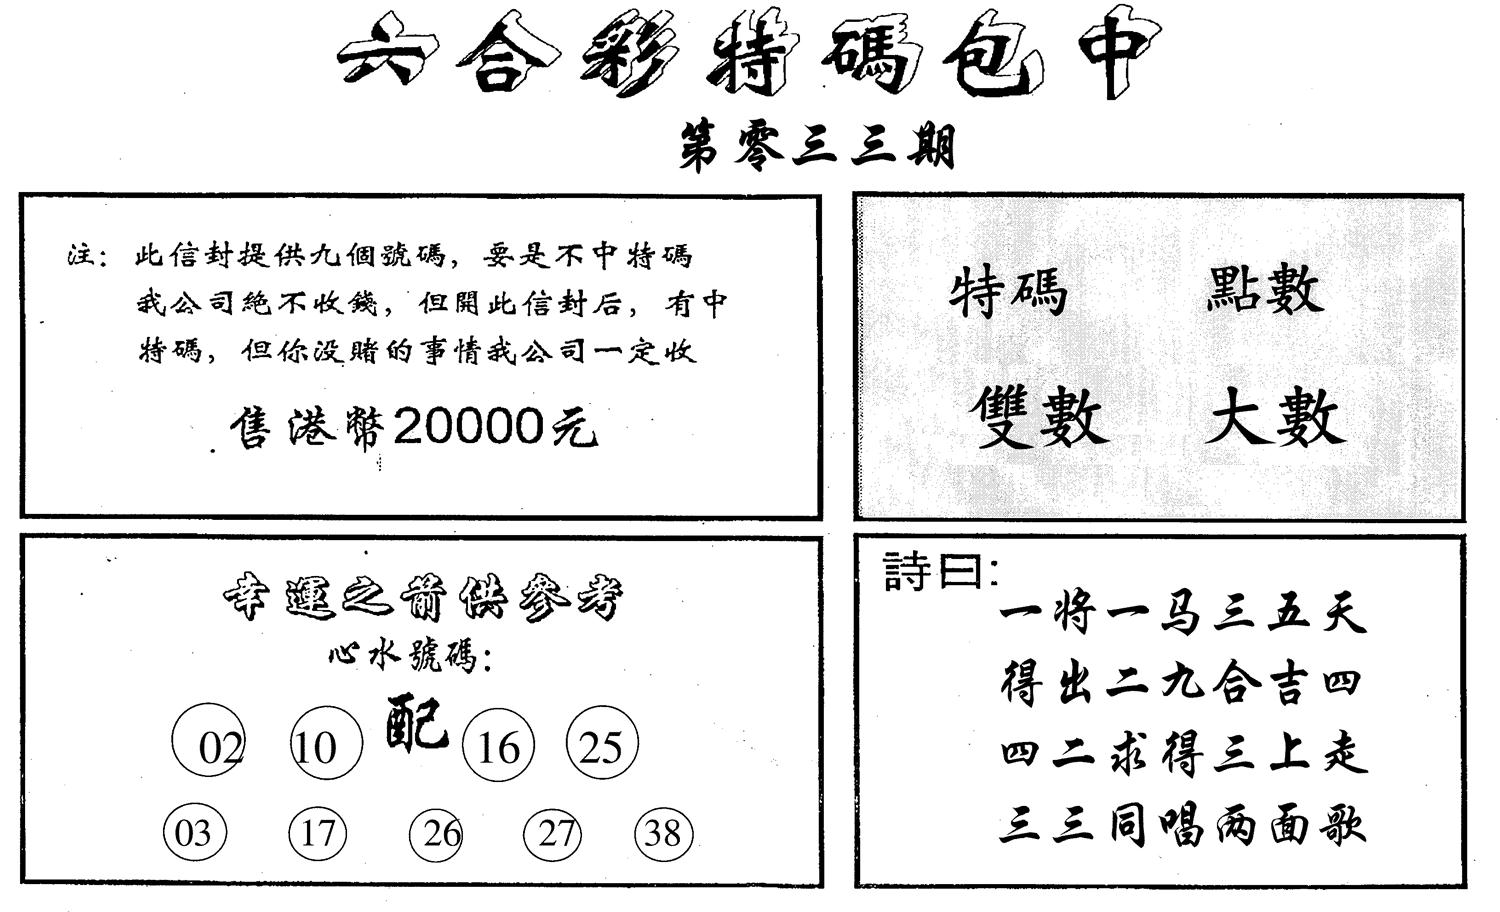 六合彩特碼包中
第零三三期
注：此信封提供九個號碼，要是不中特碼
我公司絕不收錢，但開此信封后，有中
特碼，但你没賭的事情我公司一定收
售港幣20000元
特碼 點數
雙數 大數
幸運之箭供參考
心水號碼：
02 10 配 16 25
03 17 26 27 38
詩曰：
一将一马三五天
得出二九合吉四
四二求得三上走
三三同唱两面歌